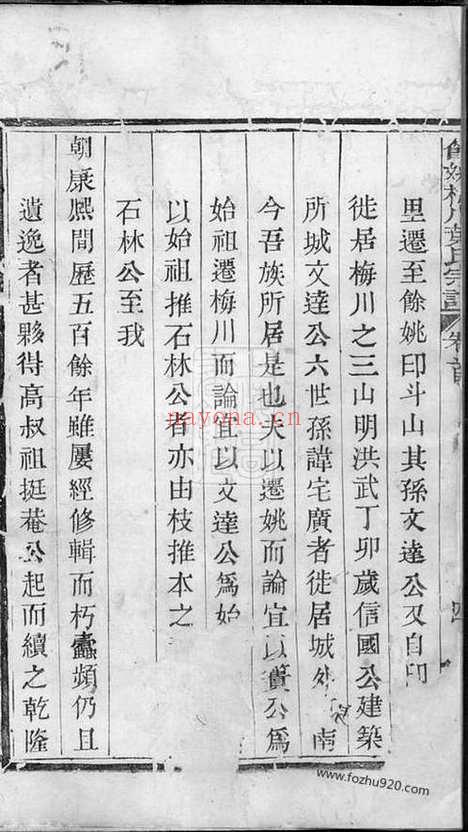 餘姚梅川葉氏宗譜 卷首
里遷至餘姚印斗山其孫文達公又自印
徙居梅川之三山明洪武丁卯歲信國公建築
所城文達公六世孫諱宅廣者徙居城外 南
今吾族所居是也夫以遷姚而論宜以 公爲
始祖遷梅川而論宜以文達公爲始
以始祖推石林公者亦由枝推本之
石林公至我
朝康熈間歷五百餘年雖屢經修輯而朽蠹頻仍且
遺逸者甚夥得高叔祖挺菴公起而續之乾隆
nayona.cn
www.fozhu920.com